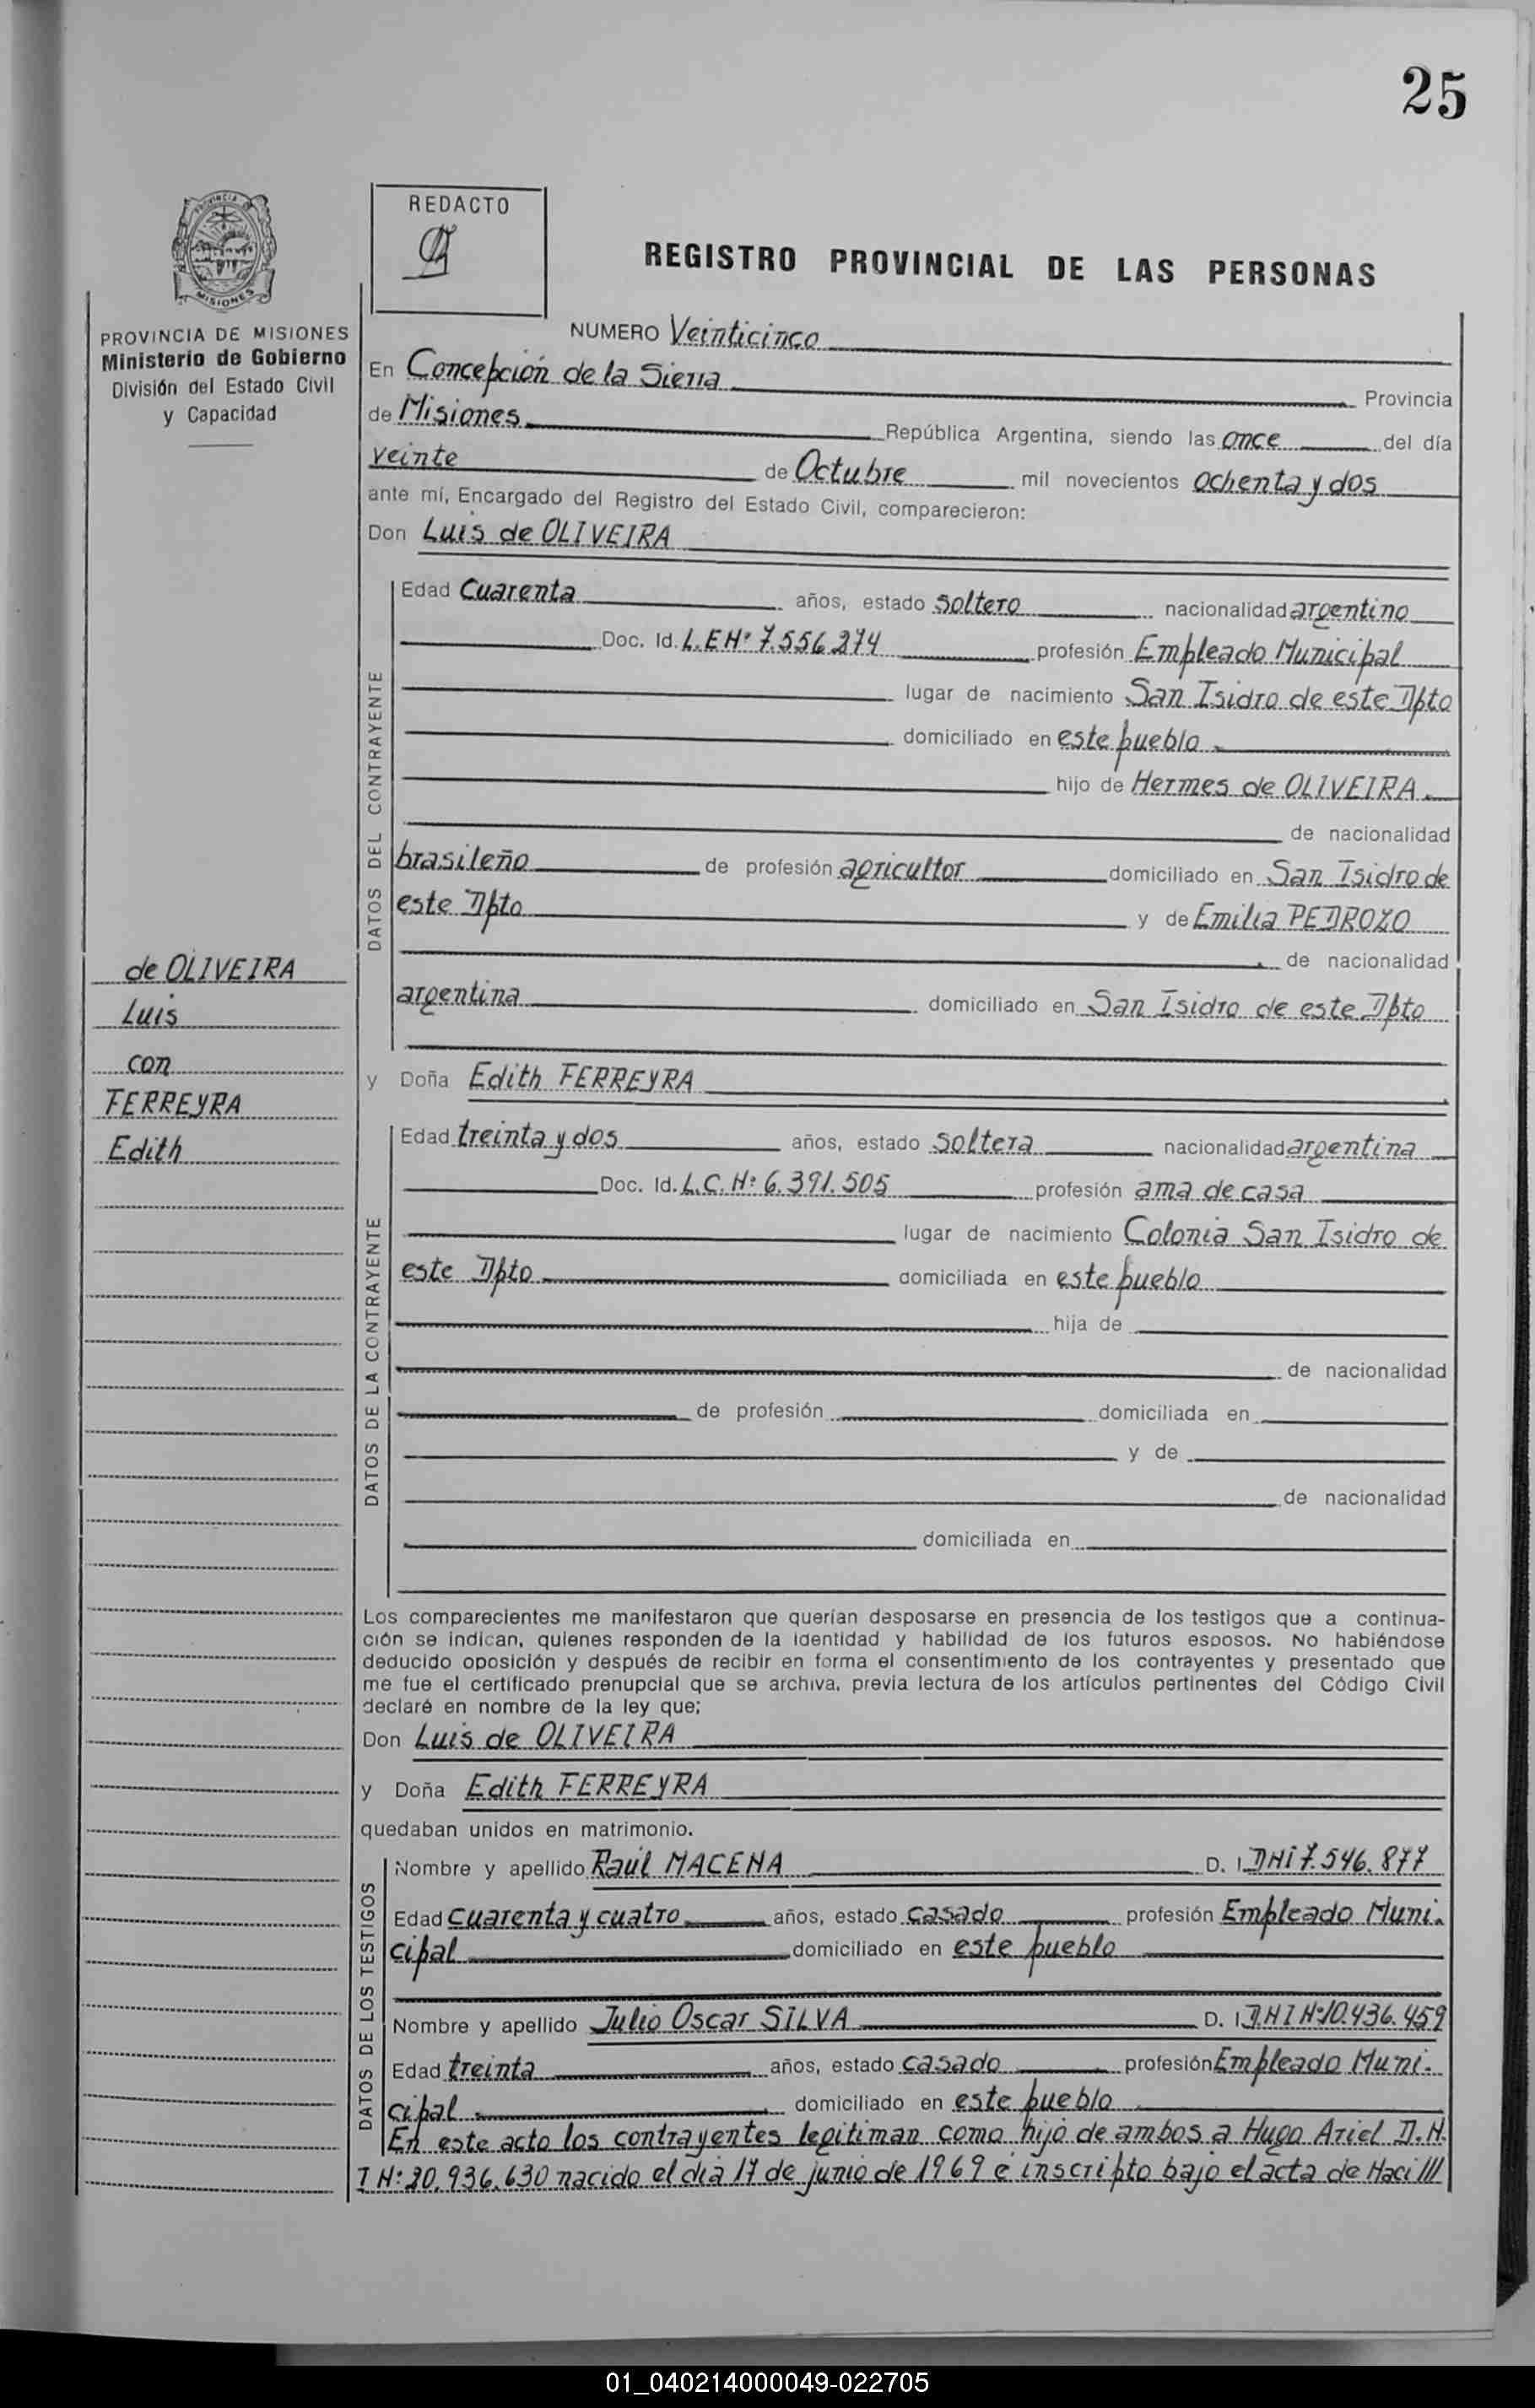 25
PROVINCIA
MISIONES
REDACTO
REGISTRO PROVINCIAL DE LAS PERSONAS
PROVINCIA DE MISIONES
Ministerio de Gobierno
División del Estado Civil
y Capacidad
NUMERO Veinticinco
En Concepción de la Sierra Provincia
de Misiones República Argentina, siendo las once del día
veinte de Octubre mil novecientos ochenta y dos
ante mí, Encargado del Registro del Estado Civil, comparecieron:
Don Luis de OLIVEIRA
DATOS DEL CONTRAYENTE
Edad Cuarenta años, estado soltero nacionalidad argentino
Doc. Id. L.E Nº 7.556.274 profesión Empleado Municipal
lugar de nacimiento San Isidro de este Dpto
domiciliado en este pueblo
hijo de Hermes de OLIVEIRA
de nacionalidad
brasileño de profesión agricultor domiciliado en San Isidro de
este Dpto y de Emilia PEDROZO
de nacionalidad
argentina domiciliado en San Isidro de este Dpto
de OLIVEIRA
Luis
con
FERREYRA
Edith
y Doña Edith FERREYRA
DATOS DE LA CONTRAYENTE
Edad treinta y dos años, estado soltera nacionalidad argentina
Doc. Id. L.C. Nº 6.391.505 profesión ama de casa
lugar de nacimiento Colonia San Isidro de
este Dpto domiciliada en este pueblo
hija de
de nacionalidad
de profesión domiciliada en
y de
de nacionalidad
domiciliada en
Los comparecientes me manifestaron que querían desposarse en presencia de los testigos que a continua-
ción se indican, quienes responden de la identidad y habilidad de los futuros esposos. No habiéndose
deducido oposición y después de recibir en forma el consentimiento de los contrayentes y presentado que
me fue el certificado prenupcial que se archiva, previa lectura de los artículos pertinentes del Código Civil
declaré en nombre de la ley que;
Don Luis de OLIVEIRA
y Doña Edith FERREYRA
quedaban unidos en matrimonio.
DATOS DE LOS TESTIGOS
Nombre y apellido Raúl MACENA D. I DNI 7.546.877
Edad cuarenta y cuatro años, estado casado profesión Empleado Muni-
cipal domiciliado en este pueblo
Nombre y apellido Julio Oscar SILVA D. I D.N I Nº 10.436.459
Edad treinta años, estado casado profesión Empleado Muni-
cipal domiciliado en este pueblo
En este acto los contrayentes legitiman como hijo de ambos a Hugo Ariel D.N.
I Nº: 20.936.630 nacido el día 17 de junio de 1969 e inscripto bajo el acta de Naci ///
01_040214000049-022705